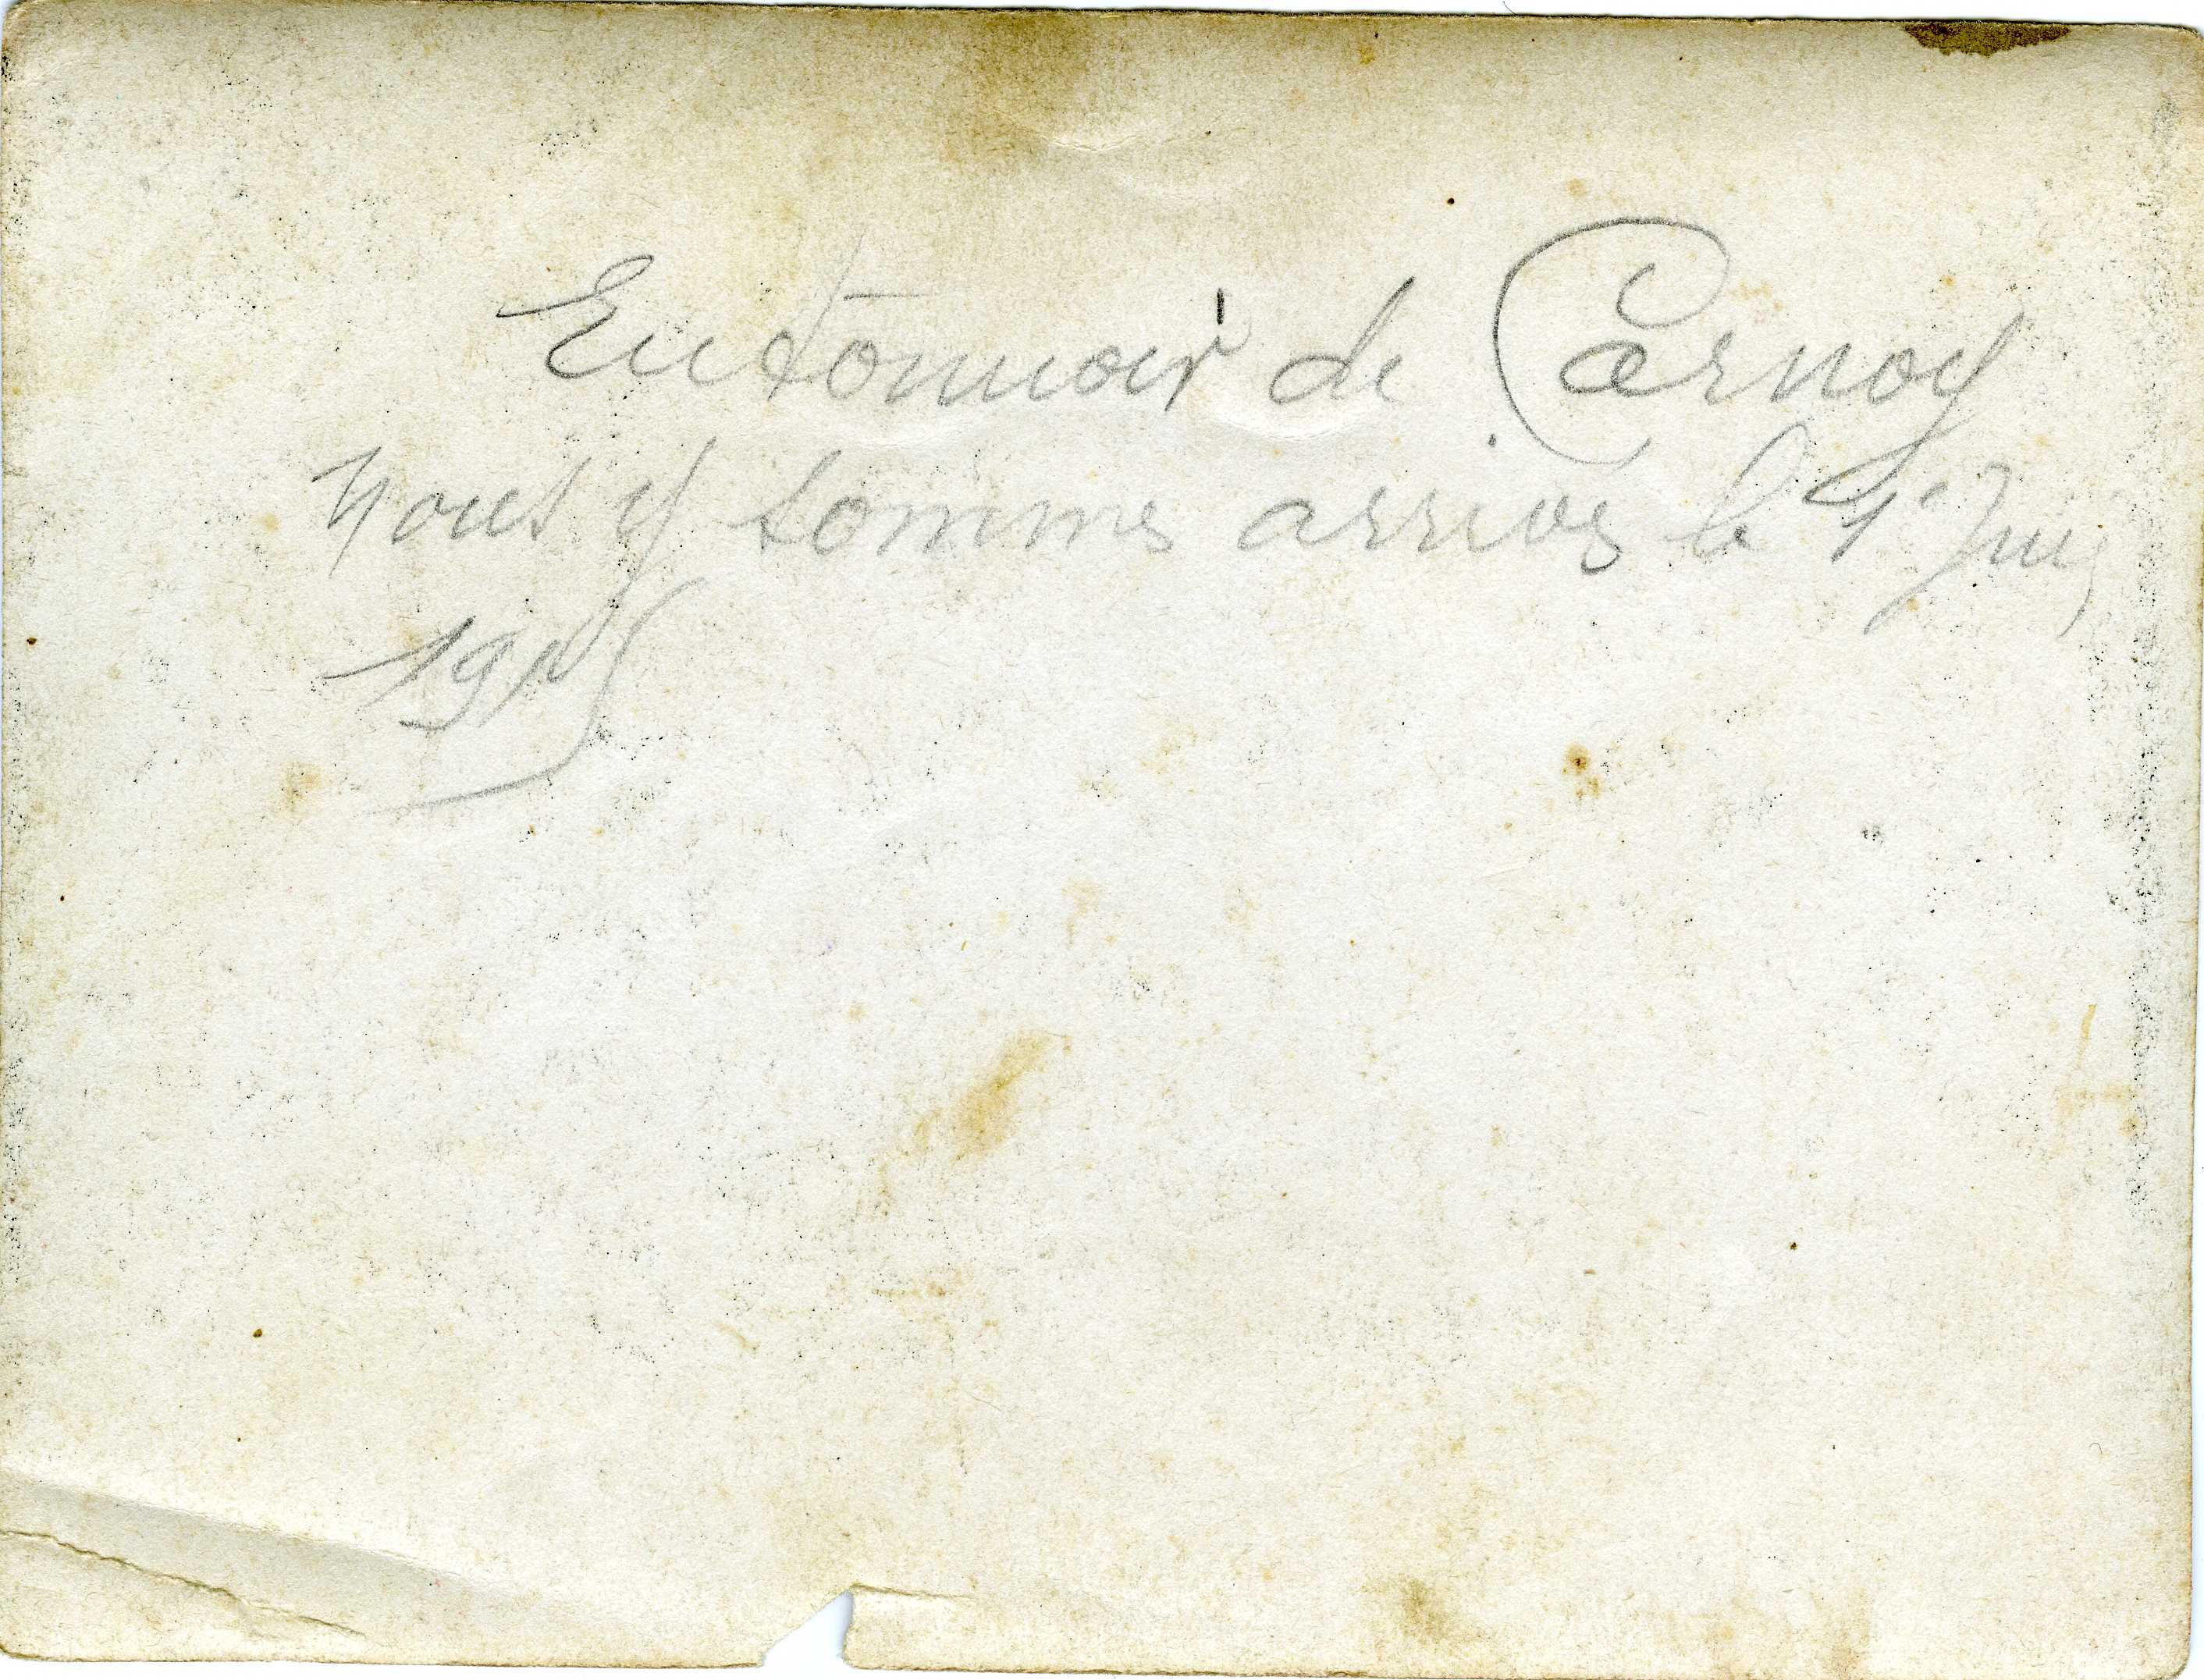 Entonnoir de Carnoy
Nous y sommes arrivés le 1er Juin
1915